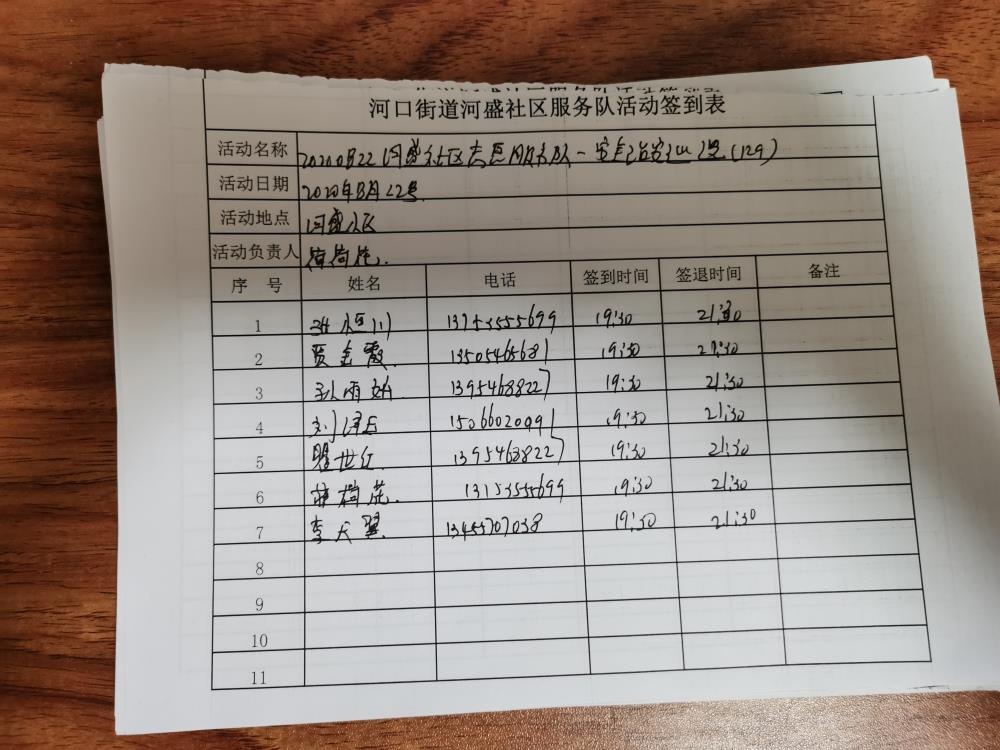 河口街道河盛社区服务队活动签到表
活动名称 20200822河盛社区志愿服务队一安全 (129)
活动日期 2020年8月22号
活动地点 河盛小区
活动负责人
序 号 姓名 电话 签到时间 签退时间 备注
1 张恒川 13153555699 19:30 21:30
2 贾金霞 13505465681 19:30 21:30
3 雨 13954688227 19:30 21:30
4 刘泽 15066020091 19:30 21:30
5 世红 13954688227 19:30 21:30
6 13153555699 19:30 21:30
7 李天翼 13455707038 19:30 21:30
8
9
10
11